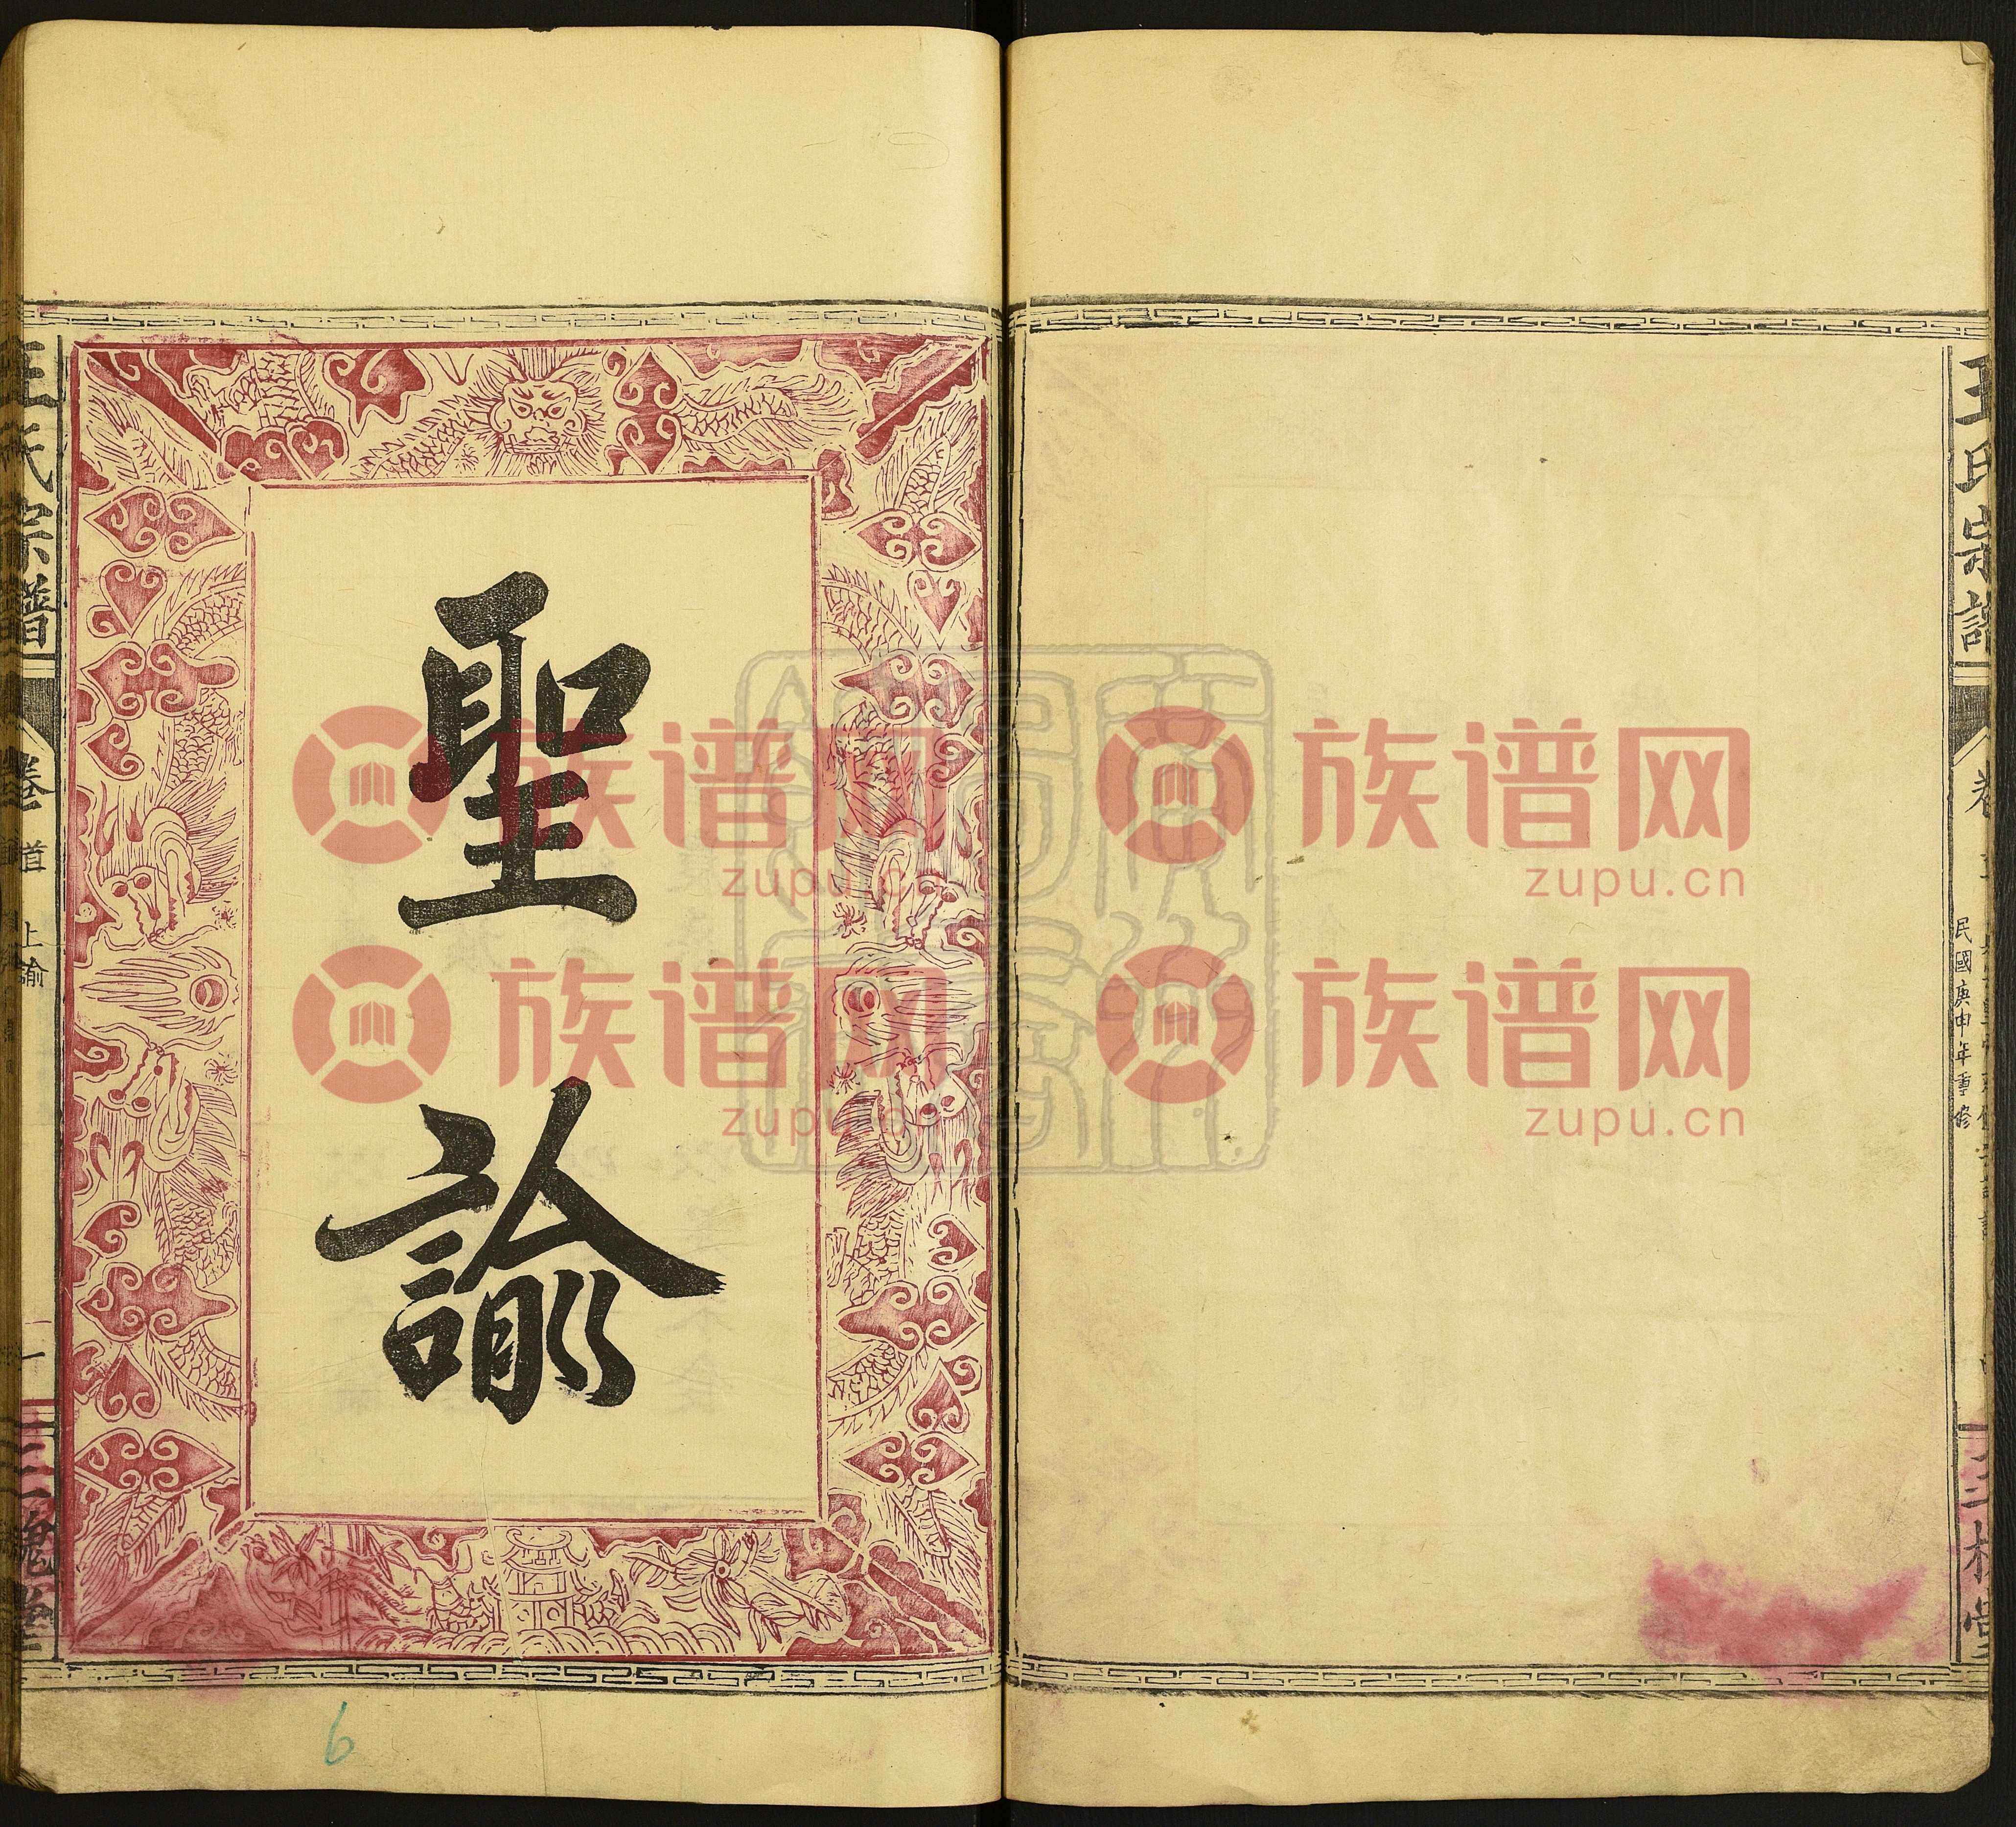 王氏宗譜
卷
民國庚申年重修
三槐堂
聖諭
王氏宗譜
卷首
上諭
一
三槐堂
6
族谱网
zupu.cn
族谱网
zupu.cn
族谱网
zupu.cn
族谱网
zupu.cn